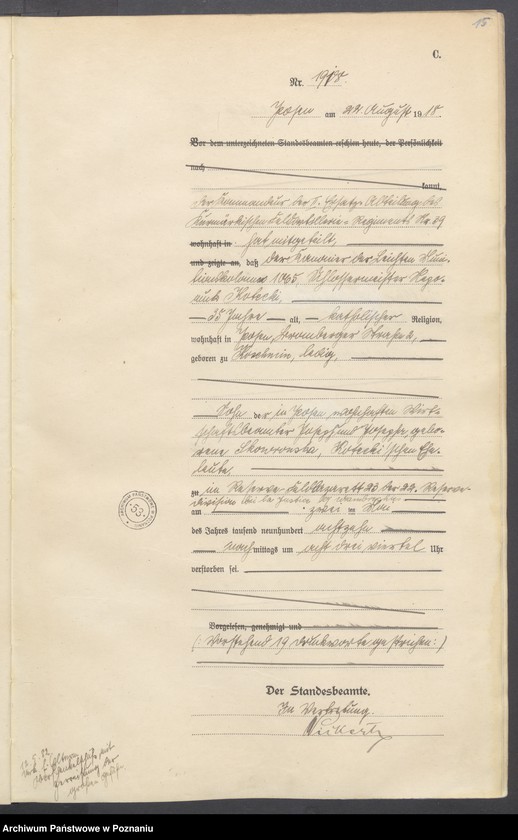 15
C.
Nr. 1918.
Posen am 22. August 1918.
Vor dem unterzeichneten Standesbeamten erschien heute, der Persönlichkeit
nach
kannt,
der Kommandeur der I. Ersatz-Abteilung des
Kurmärkischen Feldartillerie-Regiments Nr. 39
wohnhaft in hat mitgeteilt,
und zeigte an, daß der Kanonier der Leichten Muni-
tionskolonne 1065, Schlossermeister Nepo-
muk Kotecki,
35 Jahre alt, katholischer Religion,
wohnhaft in Posen, Stromberger Straße
geboren zu ledig,
Sohn der in Posen wohnhaften Wirt-
schaftsbeamter Joseph und Josepha, gebo-
rene Skowronska, Kotecki'schen Ehe-
leute,
zu im Reserve Feldlazarett 23 der 22. Reserve-
division bei
am zwei
des Jahres tausend neunhundert achtzehn
nachmittags um acht drei viertel Uhr
verstorben sei.
Vorgelesen, genehmigt und
(: Vorstehend 19 Druckworte gestrichen :)
Der Standesbeamte.
In Vertretung.
53
Archiwum Państwowe w Poznaniu